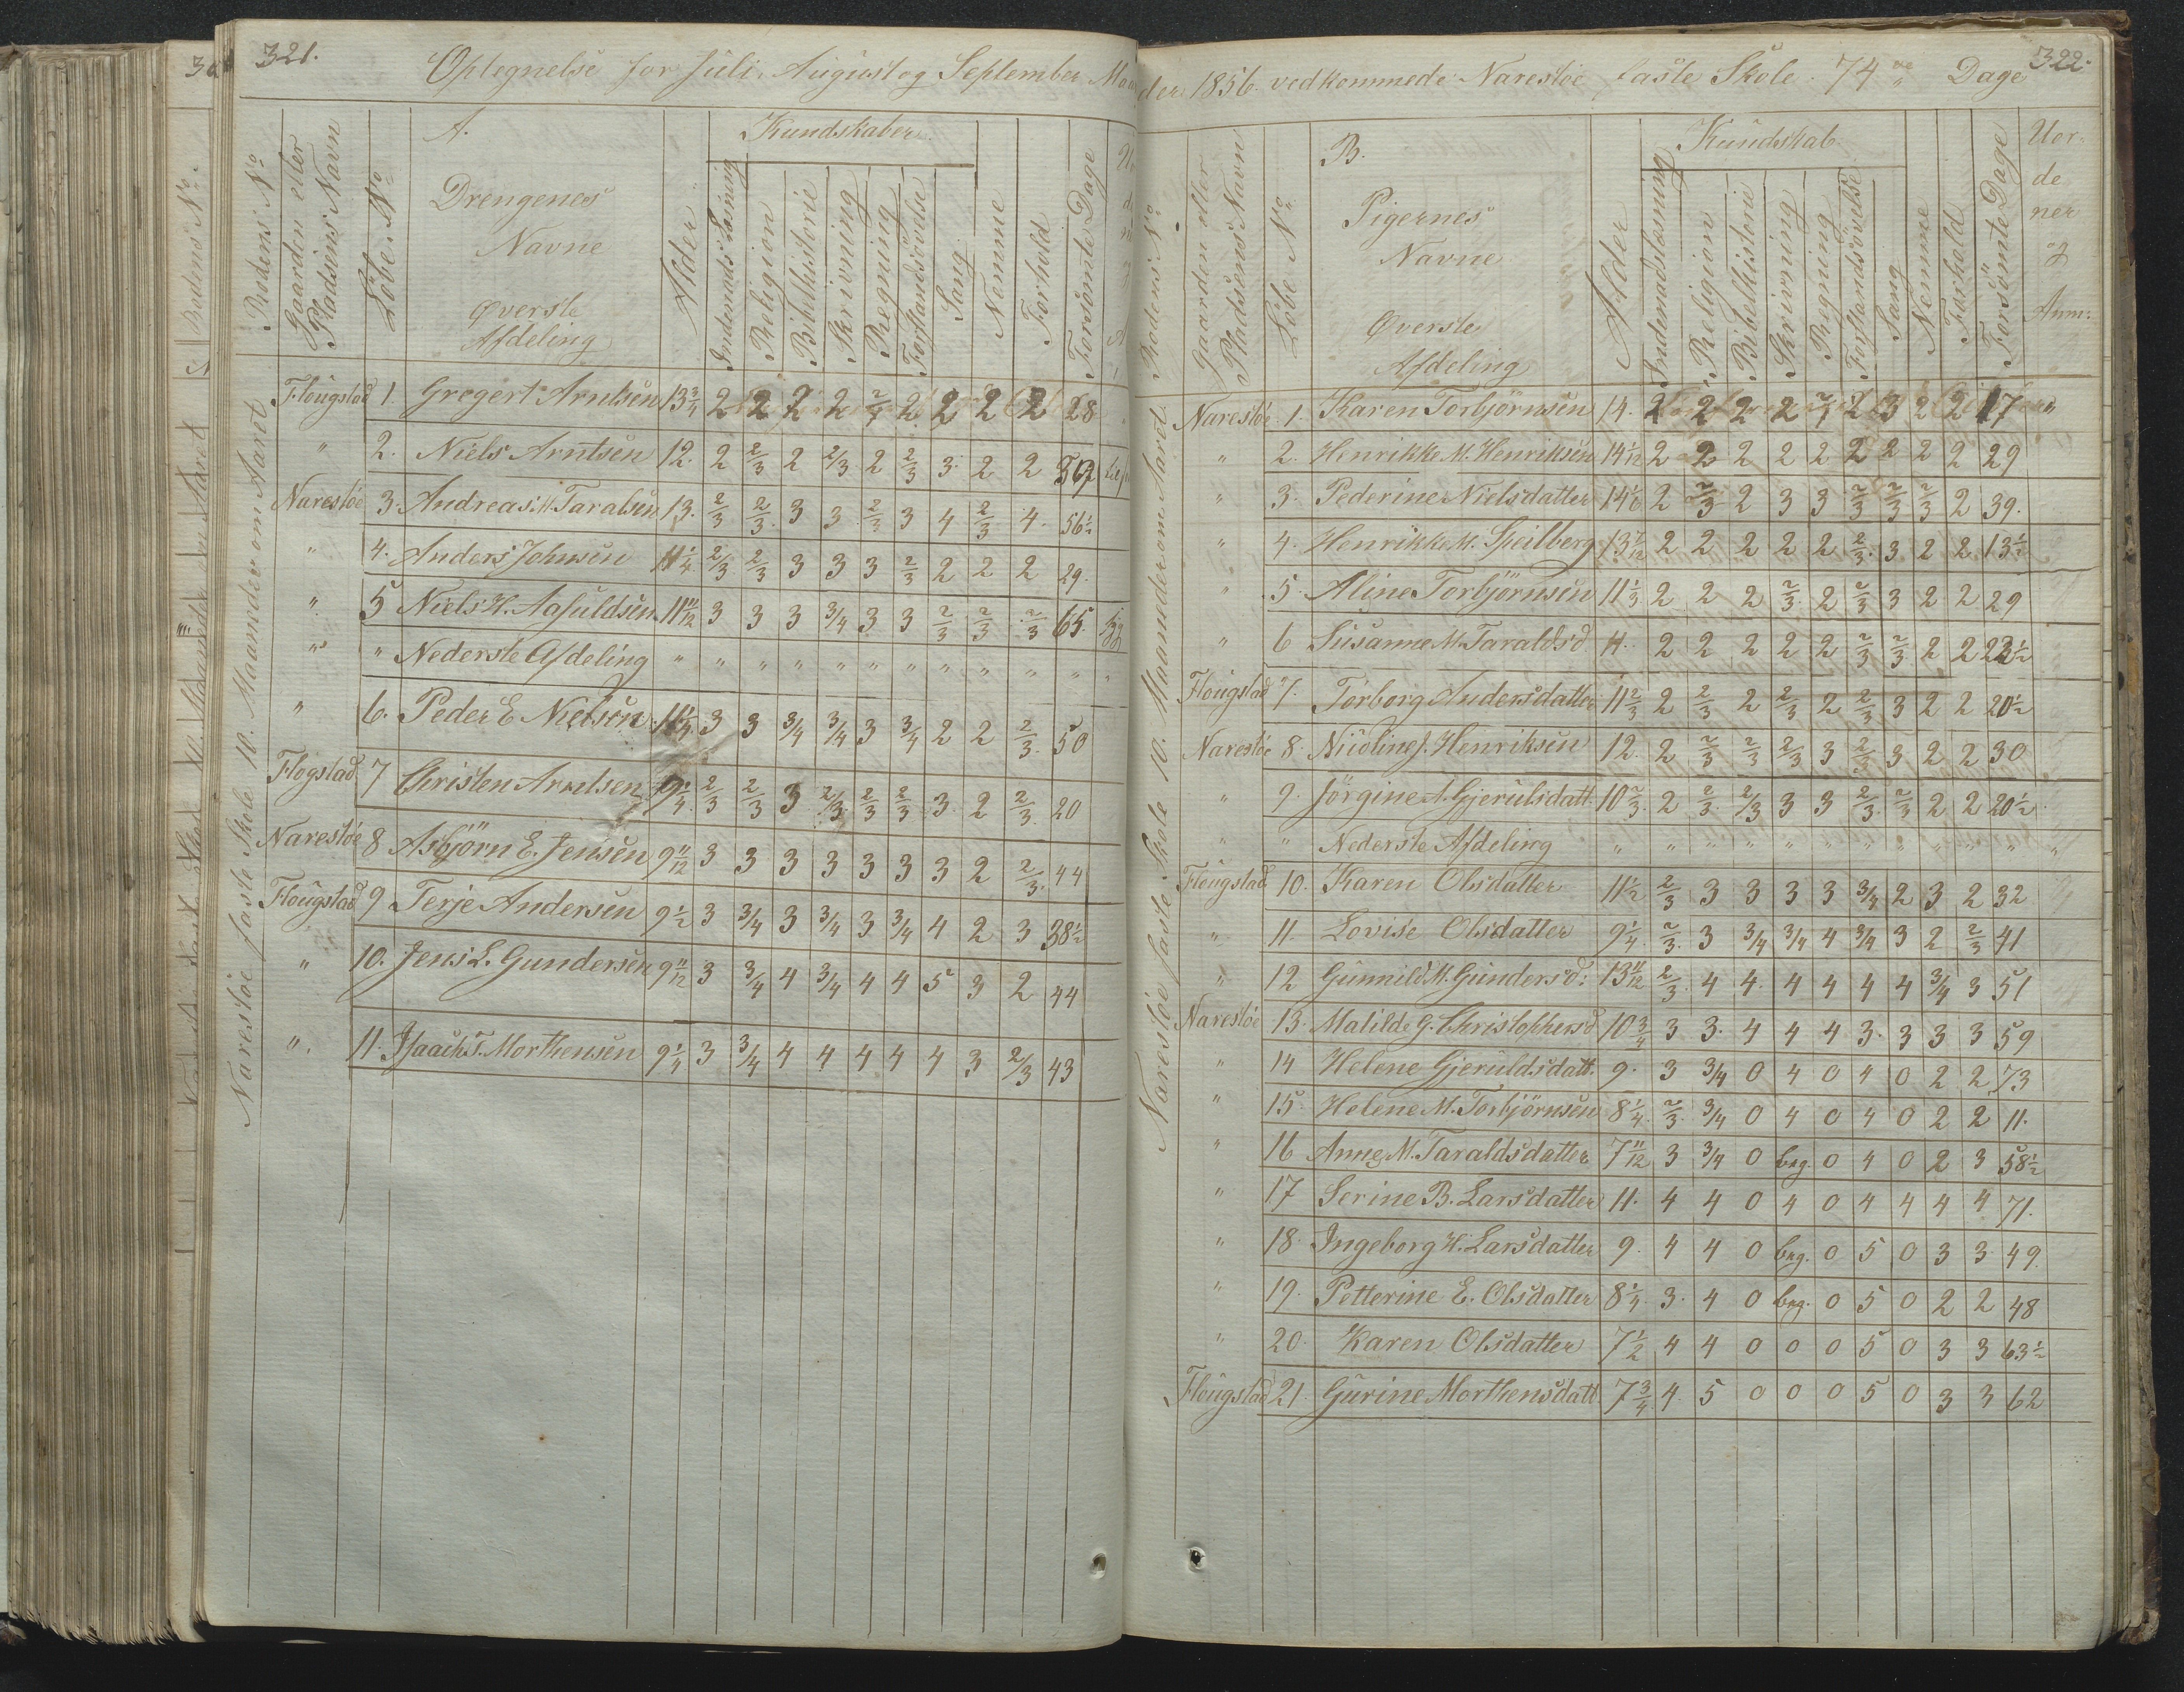 321.
Optegnelse for Juli, August og September Maa
Rodens No
Gaarden eller Pladsens Navn
Löbe No
A.
Drengenes
Navne
Øverste
Afdeling
Alder
Kundskaber
Indenadslæsning
Religion
Bibelhistorie
Skrivning
Regning
Forstandsövelse
Sang
Nemme
Forhold
Forsömte Dage
Narestöe faste Skole 10. Maaneder om Aaret
Flougstad 1. Gregert Arntsen 13 3/4 2 2 2 2 2/4 2 2 2 2 28
" 2. Niels Arntsen 12. 2 2/3 2 2/3 2 2/3 3 2 2
Narestöe 3. Andreas M. Taralsen 13. 2/3 2/3 3 3 2/3 3 4 2/3 4. 56 1/2
" 4. Anders Johnsen 11 1/4 2/3 2/3 3 3 3 2/3 2 2 2 29.
" 5 Niels H. Aasuldsen 11 11/12 3 3 3 3/4 3 3 2/3 2/3 2/3 65.
" " Nederste Afdeling " " " " " " " " " " "
" 6. Peder E Nielsen 11 1/4 3 3 3/4 3/4 3 3/4 2 2 2/3 50
Flogstad 7 Christen Arntsen 9 1/4 2/3 2/3 3 2/3 2/3 2/3 3 2 2/3 20
Narestöe 8 Asbjörn E. Jensen 9 11/12 3 3 3 3 3 3 3 2 2/3 44
Flougstad 9 Terje Andersen 9 1/2 3 3/4 3 3/4 3 3/4 4 2 3 38 1/2
" 10. Jens L. Gundersen 9 11/12 3 3/4 4 3/4 4 4 5 3 2 44
" 11. Isaach T. Morthensen 9 1/4 3 3/4 4 4 4 4 4 3 2/3 43
322.
der 1856. vedkommede Narestöe faste Skole 74 Dage
Rodens No
Gaarden eller Pladsens Navn
Löbe No
B.
Pigernes
Navne
Øverste
Afdeling
Alder
Kundskab
Indenadslæsning
Religion
Bibelhistorie
Skrivning
Regning
Forstandsövelse
Sang
Nemme
Forhold
Forsömte Dage
Uor-
de
ner
og
Anm:
Narestöe faste Skole 10. Maaneder om Aaret
Narestöe 1. Karen Torbjörnsen 14. 2 2 2 2 2/4 2 3 2 2 17
" 2. Henrikke M. Henriksen 14 1/12 2 2 2 2 2 2 2 2 2 29
" 3. Pederine Nielsdatter 14 1/6 2 2/3 2 3 3 2/3 2/3 2/3 2 39.
" 4. Henrikke M. Speilberg 13 1/12 2 2 2 2 2 2/3 3 2 2 13 1/2
" 5. Aline Torbjörnsen 11 1/3 2 2 2 2/3 2 2/3 3 2 2 29
" 6 Susanne M. Taralds'd. 11. 2 2 2 2 2 2/3 2/3 2 2 23 1/2
Flougstad 7. Torborg Andersdatter 11 2/3 2 2/3 2 2/3 2 2/3 3 2 2 20 1/2
Narestöe 8. Nicoline J. Henriksen 12. 2 2/3 2/3 2/3 3 2/3 3 2 2 30
" 9. Jörgine A. Gjerulsdatt. 10 2/3 2 2/3 2/3 3 3 2/3 2/3 2 2 20 1/2
" " Nederste Afdeling " " " " " " " " " " "
Flougstad 10. Karen Olsdatter 11 1/2 2/3 3 3 3 3 3/4 2 3 2 32
" 11. Lovise Olsdatter 9 1/4 2/3 3 3/4 3/4 4 3/4 3 2 2/3 41
" 12 Gunnild M. Gunders'd: 13 11/12 2/3 4 4 4 4 4 4 3/4 3 51
Narestöe 13. Matilde G. Christophersd. 10 3/4 3 3. 4 4 4 3. 3 3 3 59
" 14 Helene Gjeruldsdatt. 9. 3 3/4 0 4 0 4 0 2 2 73
" 15. Helene M. Torbjörnsen 8 1/4 2/3 3/4 0 4 0 4 0 2 2 11.
" 16 Anne M. Taraldsdatter 7 11/12 3 3/4 0 beg. 0 4 0 2 3 58 1/2
" 17 Serine B. Larsdatter 11. 4 4 0 4 0 4 4 4 4 71.
" 18. Ingeborg H. Larsdatter 9. 4 4 0 beg. 0 5 0 3 3 49.
" 19. Petterine E. Olsdatter 8 1/4 3. 4 0 beg. 0 5 0 2 2 48
" 20. Karen Olsdatter 7 1/2 4 4 0 0 0 5 0 3 3 63 1/2
Flougstad 21. Gurine Morthensdatt. 7 3/4 4. 5 0 0 0 5 0 3 3 62